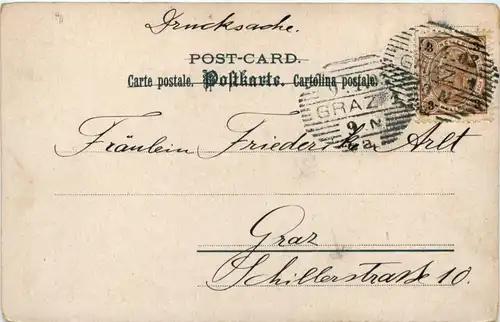 Drucksache.
POST-CARD.
Carte postale. Postkarte. Cartolina postale.
GRAZ
Fräulein Friederike Arlt
Graz
Schillerstrasse 10.